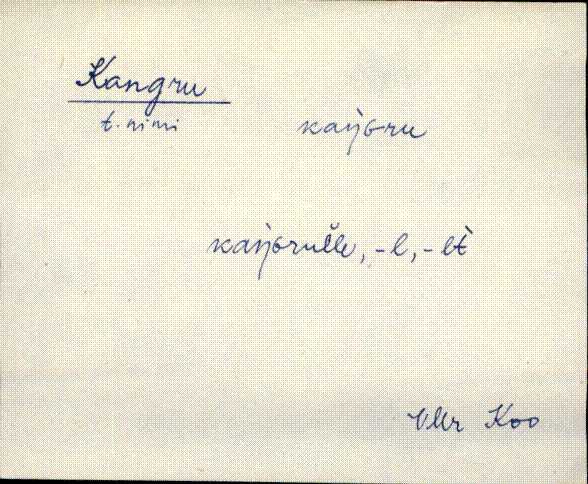 Kangru
t. nimi
kaŋɢru
kaŋɢrulle, -l, -lt
VMr Koo